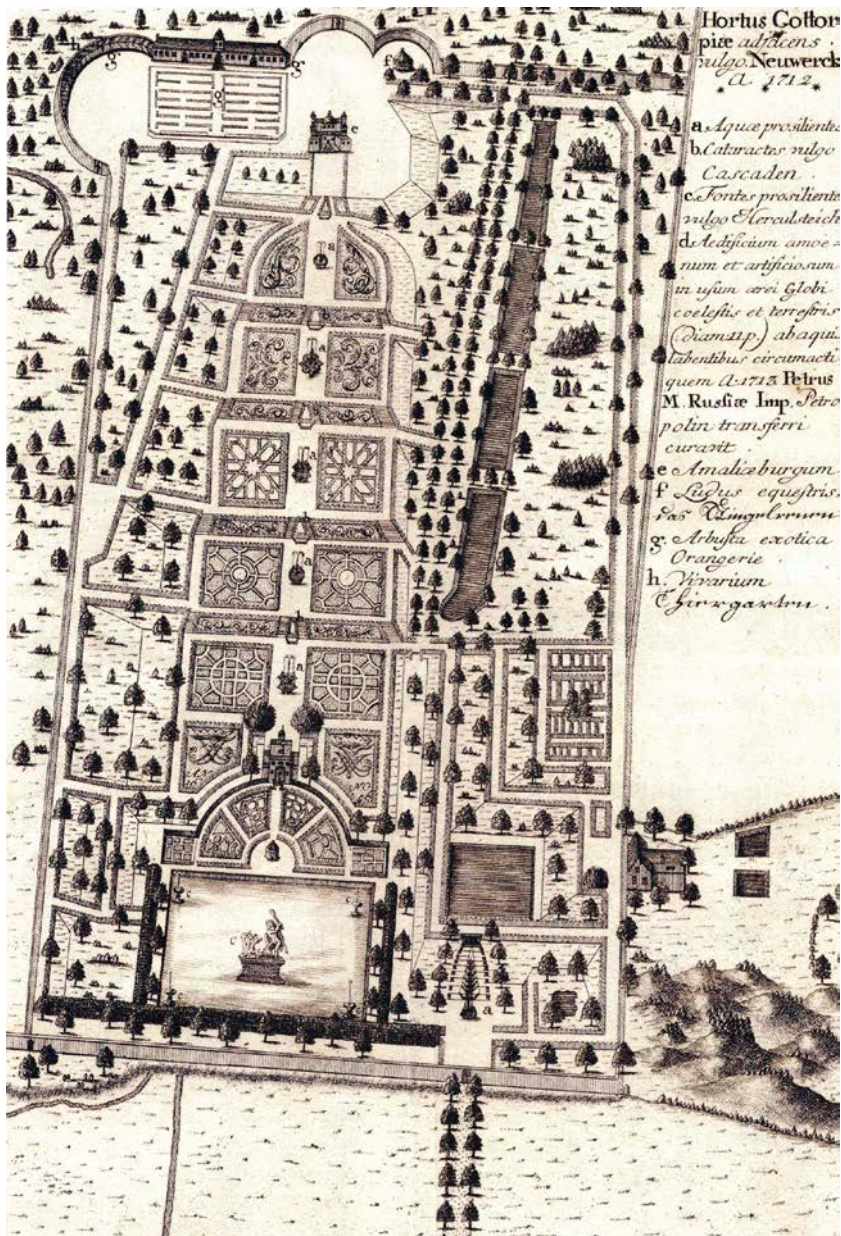 Hortus Gottor
piæ adjacens
vulgo Neuwerck
A 1712.
a Aquæ prosilientes
b. Cataractes vulgo
Cascaden.
c. Fontes prosiliente
vulgo Herculsteich
d Aedificium amoe=
num et artificiosum
in usum ærei Globi
coelestis et terrestris
(diam 11 p.) ab aquis
labentibus circumacti
quem A. 1713. Petrus
M. Russiæ Imp. Petro
polin transferri
curavit.
e Amaliæburgum
f Ludus equestris.
das Ringelrennen
g. Arbusta exotica
Orangerie.
h. Vivarium
Thiergarten.
h
g
g
g
f
e
a
a
a
a
b
a
d
c
c
c
a